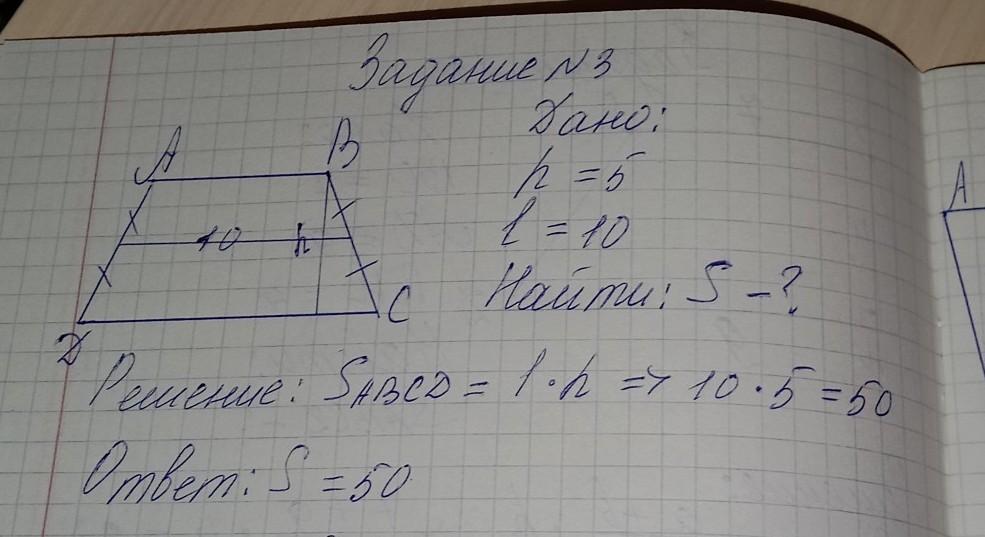 Задание N3
A
B
Дано:
h = 5
l = 10
10
h
Найти: S - ?
C
D
Решение: SABCD = l · h => 10 · 5 = 50
Ответ: S = 50
A